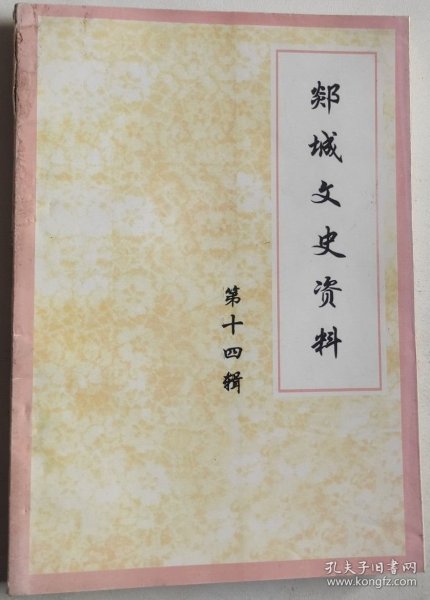 郯城文史资料
第十四辑
孔夫子旧书网
www.kongfz.com